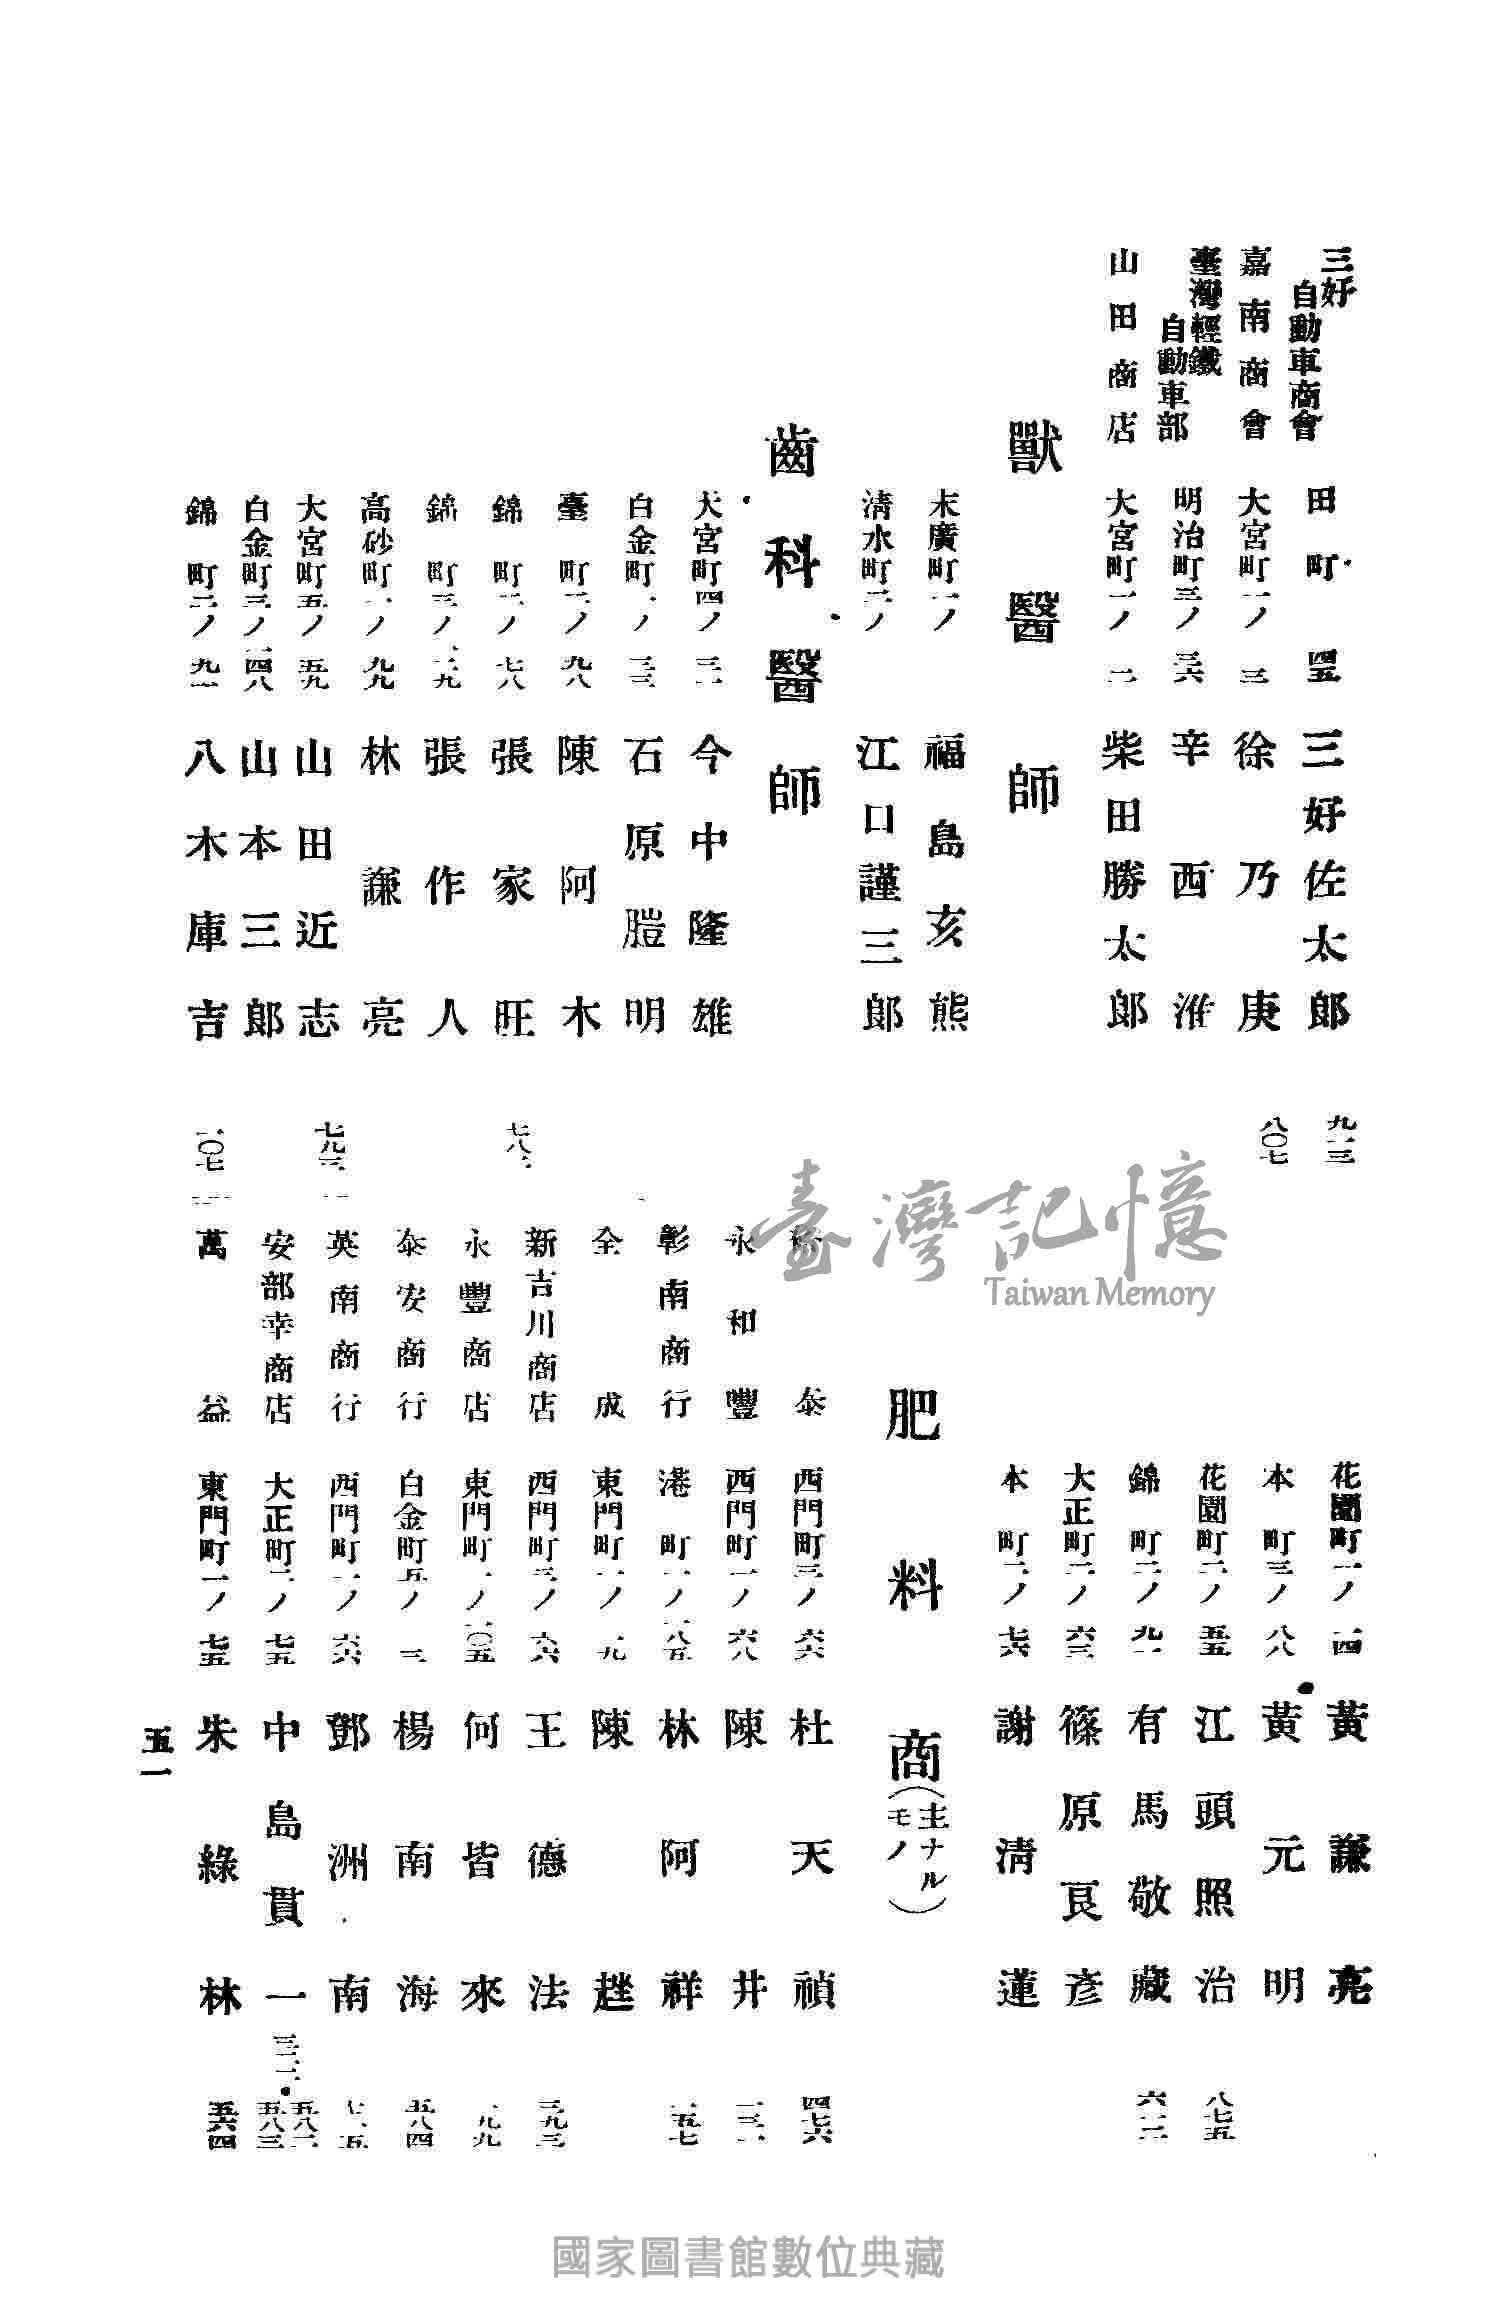 三好自動車商會 田町 四五 三好佐太郎 九一三
嘉南商會 大宮町一ノ三 徐乃庚 八〇七
臺灣輕鐵自動車部 明治町三ノ三六 辛西淮
山田商店 大宮町一ノ二 柴田勝太郎
獸醫師
末廣町一ノ 福島亥熊
清水町二ノ 江口謹三郎
齒科醫師
大宮町四ノ三一 今中隆雄
白金町一ノ三三 石原隑明
臺町二ノ九八 陳阿木
錦町二ノ七八 張家旺 七八一
錦町三ノ一二九 張作人
高砂町一ノ九九 林謙亮
大宮町五ノ五九 山田近志 七九三
白金町三ノ一四八 山本三郎
錦町二ノ九一 八木庫吉 一〇七
花園町一ノ一四 黃謙亮
本町三ノ八八 黃元明
花園町二ノ五五 江頭照治 八七五
錦町二ノ九一 有馬敬藏 六一二
大正町二ノ六三 篠原良彥
本町二ノ七六 謝清蓮
肥料商(主ナルモノ)
泰 西門町三ノ六六 杜天禎 四七六
永和豐 西門町一ノ六八 陳井 一三一
彰南商行 港町一ノ一八五 林阿祥 一五七
全成 東門町一ノ一九 陳趖
新吉川商店 西門町三ノ六六 王德法 三九三
永豐商店 東門町一ノ一〇五 何皆來 一九九
泰安商行 白金町五ノ三 楊南海 五八四
英南商行 西門町一ノ六六 鄧洲南 七一五
安部幸商店 大正町二ノ七五 中島貫一 三二一・五八二 五八三
萬益 東門町一ノ七五 朱綠林 五六四
五一
臺灣記憶
Taiwan Memory
國家圖書館數位典藏